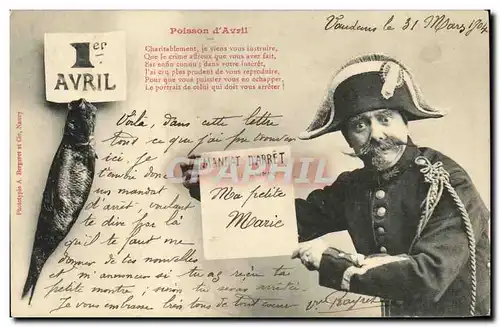 Poisson d'Avril
Vaudens le 31 Mars 1904
1er
AVRIL
Charitablement, je viens vous instruire,
Que le crime affreux que vous avez fait,
Est enfin connu; dans votre intérêt,
J'ai cru plus prudent de vous reproduire,
Pour que vous puissiez vous en échapper,
Le portrait de celui qui doit vous arrêter!
Voilà, dans cette lettre
tout ce que j'ai pu trouver
ici. Je
t'ambi donc
un mandat
d'arrêt, voulant
te dire par là
qu'il te faut me
donner de tes nouvelles
et m'annoncer si tu as reçu la
petite montre; si tu seras
Je vous embrasse tous de tout coeur
MANDAT D'ARRÊT
Ma petite
Marie
CPRPHIL
Phototypie A. Bergeret et Cie, Nancy